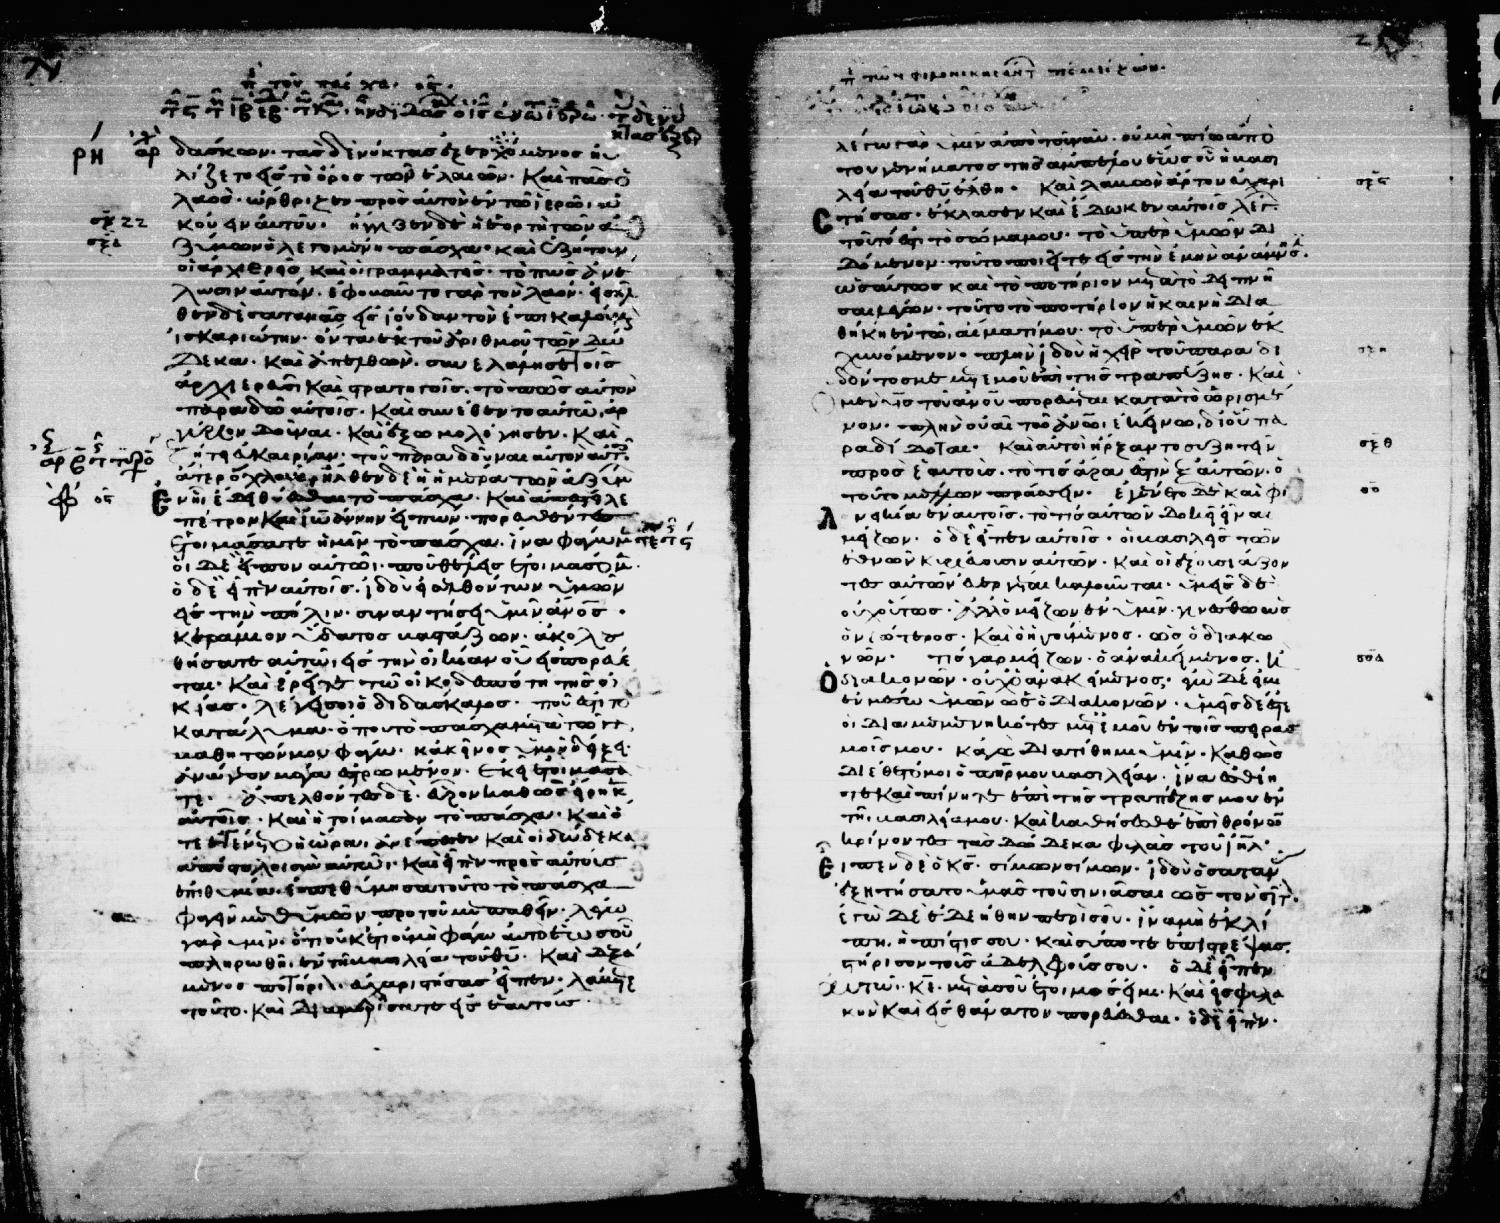 π τοῦ πάσχα· ος
δάσκων· τὰς δὲ νύκτας ἐξερχόμενος ηυ
λίζετο εἰς τὸ ὄρος τῶν ἐλαιῶν· Καὶ πᾶς ὁ
λαὸς· ὤρθριζεν πρὸς αὐτὸν ἐν τῶ ἱερῶ· ἀ
κούειν αὐτοῦ· ἤγγιζεν δὲ ἡ ἑορτὴ τῶν ἀ
ζύμων ἡ λεγομένη πάσχα· καὶ ἐζήτουν
οἱ ἀρχιερεῖς καὶ οἱ γραμματεῖς· τὸ πῶς ἀνέ
λωσιν αὐτόν· ἐφοβοῦντο γὰρ τὸν λαόν· εἰσῆλ
θεν δὲ σατανᾶς εἰς ἰούδαν τὸν ἐπικαλούμε
ἰσκαριώτην· ὄντα ἐκ τοῦ ἀριθμοῦ τῶν δώ
δεκα· Καὶ ἀπελθὼν· συνελάλησε τοῖς
ἀρχιερεῦσι καὶ στρατηγοῖς· τὸ πῶς αὐτὸν
παραδῶ αὐτοῖς· Καὶ συνέθεντο αὐτῶ, ἀρ
γύριον δοῦναι· Καὶ ἐξωμολόγησεν· Καὶ
ἐζήτει εὐκαιρίαν· τοῦ παραδοῦναι αὐτὸν αὐτοῖς
ἄτερ ὄχλου· ἦλθεν δὲ ἡ ἡμέρα τῶν ἀζύμ
ἐν ἧ ἔδει θύεσθαι τὸ πάσχα· Καὶ ἀπέστειλε
πέτρον καὶ ἰωάννην εἰπών· πορευθέντες
ἑτοιμάσατε ἡμῖν τὸ πάσχα· ἵνα φάγωμεν
οἱ δὲ εἶπον αὐτῶ· ποῦ θέλεις ἑτοιμάσωμ
ὁ δὲ εἶπεν αὐτοῖς· ἰδοὺ εἰσελθόντων ὑμῶν
εἰς τὴν πόλιν· συναντήσει ὑμῖν ἄνος
κεράμιον ὕδατος βαστάζων· ἀκολου
θήσατε αὐτῶ, εἰς τὴν οἰκίαν οὗ εἰσπορεύε
ται· Καὶ ἐρεῖτε τῶ οἰκοδεσπότη τῆς οἰ
κίας· λέγει σοι ὁ διδάσκαλος· ποῦ ἐστι τὸ
κατάλυμα· ὅπου τὸ πάσχα μετὰ τῶν
μαθητῶν μου φάγω· κἀκεῖνος ὑμῖν δείξει
ἀνώγεον μέγα ἐστρωμένον· Ἐκεῖ ἑτοιμάσα
τε· ἀπελθόντες δὲ· εὗρον καθὼς εἴρηκ
αὐτοῖς· Καὶ ἡτοίμασαν τὸ πάσχα· Καὶ ὅ
τε ἐγένετο ἡ ὥρα, ἀνέπεσεν καὶ οἱ δώδεκα
ἀπόστολοι σὺν αὐτῶ· Καὶ εἶπεν πρὸς αὐτοὺς
ἐπιθυμία· ἐπεθύμησα τοῦτο τὸ πάσχα
φαγεῖν μεθ' ὑμῶν πρὸ τοῦ με παθεῖν· λέγω
γὰρ ὑμῖν, ὅτι οὐκέτι οὐ μὴ φάγω αὐτὸ ἕως οὗ
πληρωθῆ, ἐν τῆ βασιλεία τοῦ θῦ· Καὶ δεξά
μενος ποτήριον· εὐχαριστήσας εἶπεν· λάβετε
τοῦτο· Καὶ διαμερίσατε εἰς ἑαυτοὺς·
λέγω γὰρ ὑμῖν ἀπὸ τοῦ νῦν· οὐ μὴ πίω ἀπὸ
τοῦ γεννήματος τῆς ἀμπέλου ἕως οὗ ἡ βασι
λεία τοῦ θῦ ἔλθη· Καὶ λαβὼν ἄρτον εὐχαρι
στήσας· ἔκλασεν καὶ ἔδωκεν αὐτοῖς λέγ
τοῦτό ἐστι τὸ σῶμά μου· τὸ ὑπὲρ ὑμῶν δι
δόμενον· τοῦτο ποιεῖτε εἰς τὴν ἐμὴν ἀνάμνησ
ὡσαύτως καὶ τὸ ποτήριον μετὰ τὸ δειπνῆ
σαι λέγων· τοῦτο τὸ ποτήριον ἡ καινὴ δια
θήκη ἐν τῶ αἵματί μου· τὸ ὑπὲρ ὑμῶν ἐκ
χυνόμενον· πλὴν ἰδοὺ ἡ χεὶρ τοῦ παραδι
δόντος με μετ' ἐμοῦ ἐπὶ τῆς τραπέζης· Καὶ
μὲν υς τοῦ ανου πορεύεται κατὰ τὸ ὡρισμέ
νον· πλὴν οὐαὶ τῶ ανω ἐκείνω, δι' οὗ πα
ραδίδοται· Καὶ αὐτοὶ ἤρξαντο συζητεῖν
πρὸς ἑαυτοὺς· τὸ τίς ἄρα ἐστὶν ἐξ αὐτῶν· ὁ
τοῦτο μέλλων πράσσειν· ἐγένετο δὲ καὶ φι
λονεικία ἐν αὐτοῖς· τὸ τίς αὐτῶν δοκεῖ εἶναι
μείζων· ὁ δὲ εἶπεν αὐτοῖς· οἱ βασιλεῖς τῶν
ἐθνῶν κυριεύουσιν αὐτῶν· Καὶ οἱ ἐξουσιάζον
τες αὐτῶν εὐεργέται καλοῦνται· ὑμεῖς δὲ
οὐχ οὕτως· ἀλλ' ὁ μείζων ἐν ὑμῖν· γινέσθω ὡς
ὁ νεώτερος· Καὶ ὁ ἡγούμενος· ὡς ὁ διακο
νῶν· τίς γὰρ μείζων· ὁ ἀνακείμενος· ἢ
ὁ διακονῶν· οὐχὶ ὁ ἀνακείμενος· ἐγὼ δέ εἰμι
ἐν μέσω ὑμῶν ὡς ὁ διακονῶν· ὑμεῖς δέ ἐστε
οἱ διαμεμενηκότες μετ' ἐμοῦ ἐν τοῖς πειρασ
μοῖς μου· κἀγὼ διατίθημι ὑμῖν· Καθὼς
διέθετό μοι ὁ πηρ μου βασιλείαν· ἵνα ἐσθίη
τε καὶ πίνητε ἐπὶ τῆς τραπέζης μου ἐν
τῆ βασιλεία μου· Καὶ καθήσεσθε ἐπὶ θρόνων
κρίνοντες τὰς δώδεκα φυλὰς τοῦ ιηλ·
εἶπεν δὲ ὁ κς· σίμων σίμων· ἰδοὺ ὁ σατανᾶς
ἐξητήσατο ὑμᾶς τοῦ σινιάσαι ὡς τὸν σῖτ
ἐγὼ δὲ ἐδεήθην περὶ σοῦ· ἵνα μὴ ἐκλί
πη, ἡ πίστις σου· Καὶ σύ ποτε ἐπιστρέψας
στήρισον τοὺς ἀδελφούς σου· ὁ δὲ εἶπεν
αὐτῶ· κε· μετὰ σοῦ ἕτοιμός εἰμι· Καὶ εἰς φυλα
κὴν καὶ εἰς θάνατον πορεύεσθαι· ὁ δὲ εἶπεν·